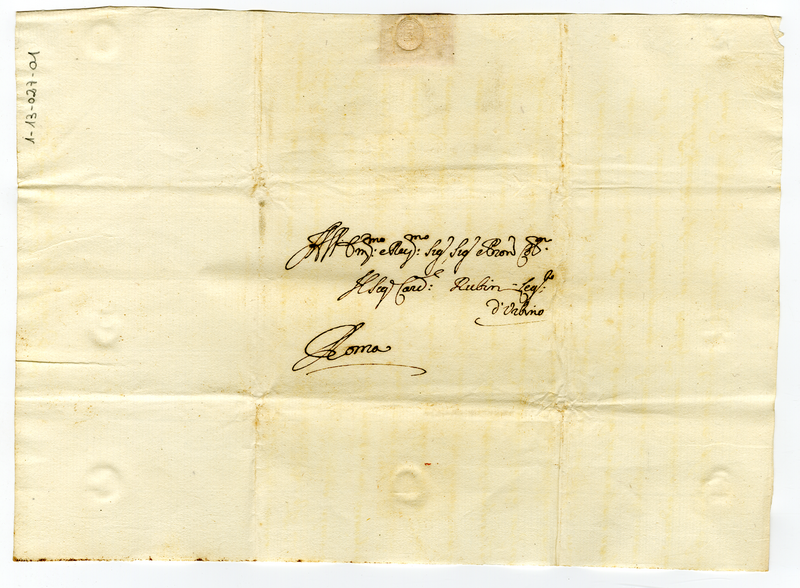 All Em:mo e Rev:mo Sig.r Sig.r e Pron Col:mo
Il Sig.r Card:e Rubin = Leg:to
d'Urbino
Roma
1-13-027-01